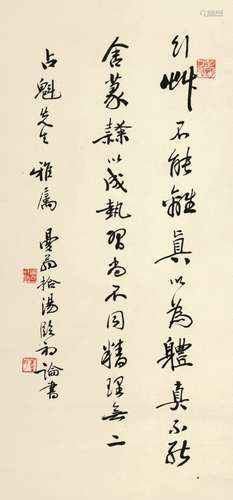 行艸不能離眞以為體真不能
舍篆隸以成執習尚不同精理無二
占魁先生雅屬 曼翁拾湯臨初論書